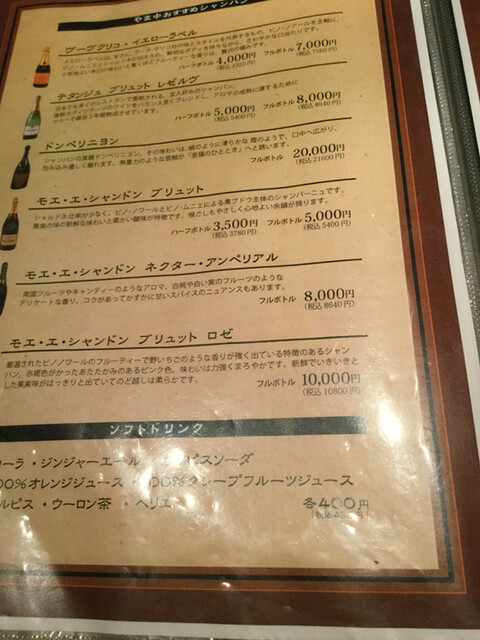 やま中おすすめシャンパン
ヴーヴクリコ・イエローラベル
ハーフボトル 4,000円 フルボトル 7,000円
(税込 4320円) (税込 7560円)
テタンジェ ブリュット レゼルヴ
日本でも多くのレストランで愛飲される、玄人好みのシャンパン。
ハーフボトル 5,000円 フルボトル 8,000円
(税込 5400円) (税込 8640円)
ドンペリニヨン
シャンパンの真髄ドンペリニヨン。その味わいは、絹のように滑らかな 霞のようで、口中へ広がり、
包み込み優しく離れます。無重力のような感触が「至福のひととき」へと誘います。
フルボトル 20,000円
(税込 21600円)
モエ・エ・シャンドン ブリュット
シャルドネ比率が少なく、ピノ・ノワールとピノ・ムニエによる黒ブドウ主体のシャンパーニュです。
果実の味の新鮮な味わいと柔かい酸味が特徴です。喉ごしもやさしく心地よい余韻が残ります。
ハーフボトル 3,500円 フルボトル 5,000円
(税込 3780円) (税込 5400円)
モエ・エ・シャンドン ネクター・アンペリアル
南国フルーツやキャンディーのようなアロマ、白桃や白い実のフルーツのような
デリケートな香り、コクがあってかすかに甘いスパイスのニュアンスもあります。
フルボトル 8,000円
(税込 8640円)
モエ・エ・シャンドン ブリュット ロゼ
厳選されたピノノワールのフルーティーで野いちごのような香りが強く出ている特徴のあるシャン
パン。赤褐色がかったあたたかみのあるピンク色。味わいは力強くまろやかです。新鮮でいきいきと
した果実味がはっきりと出ていてのど越しは柔らかです。
フルボトル 10,000円
(税込 10800円)
ソフトドリンク
コーラ ・ジンジャーエール ピスソーダ
00%オレンジジュース ・100%グレープフルーツジュース
ルピス ・ウーロン茶 ・ペリエ 各400円